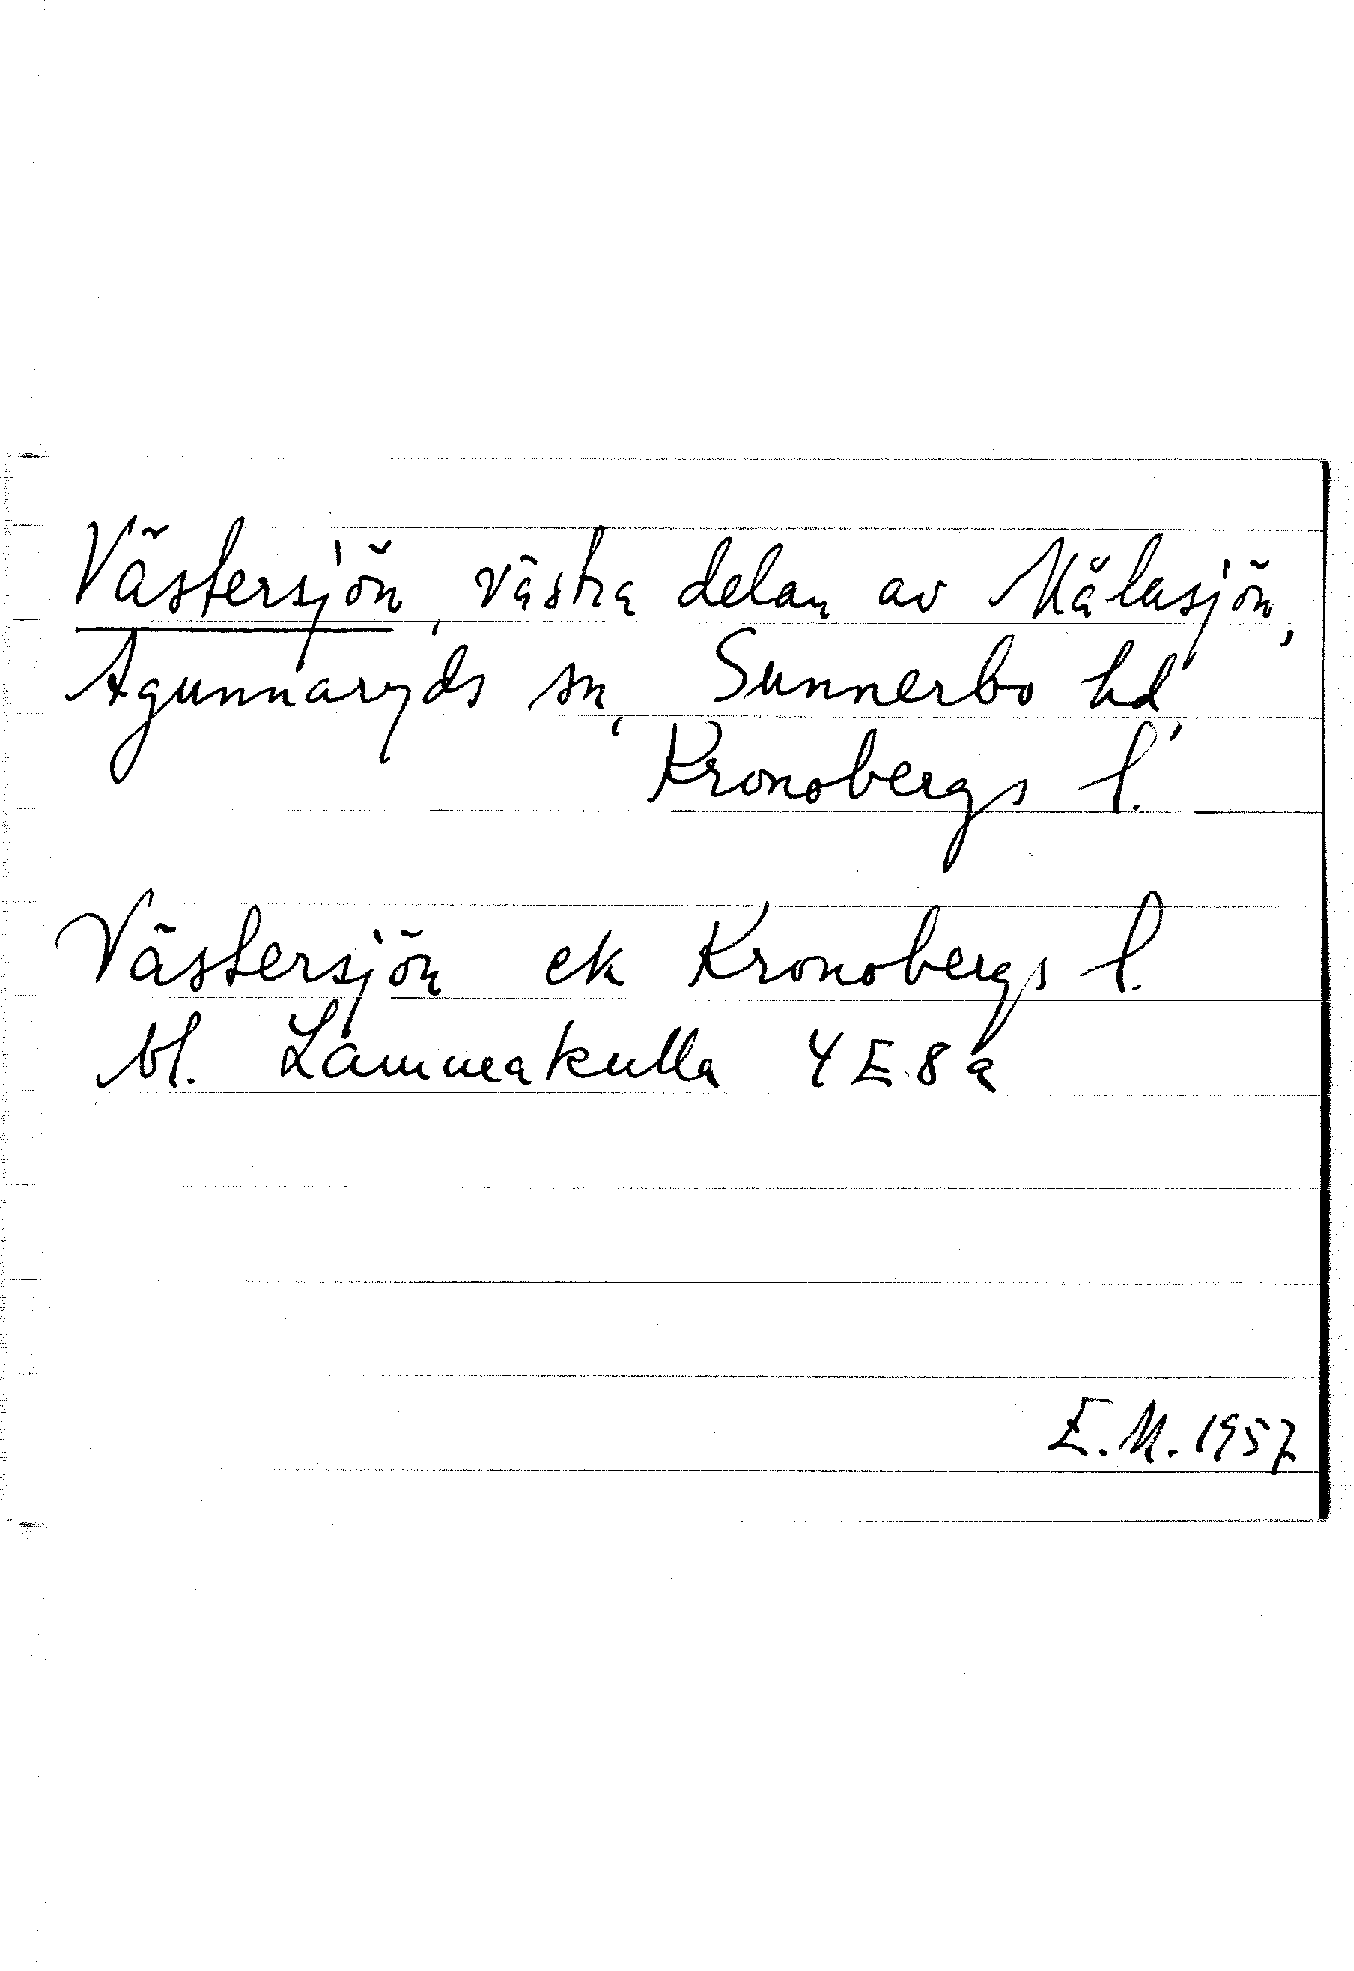 Västersjön, västra delen av Målasjön,
Agunnaryds sn, Sunnerbo hd,
Kronobergs l.
Västersjön ek Kronobergs l.
bl. Lammakulla 4 E 8 a
E.M. 1957